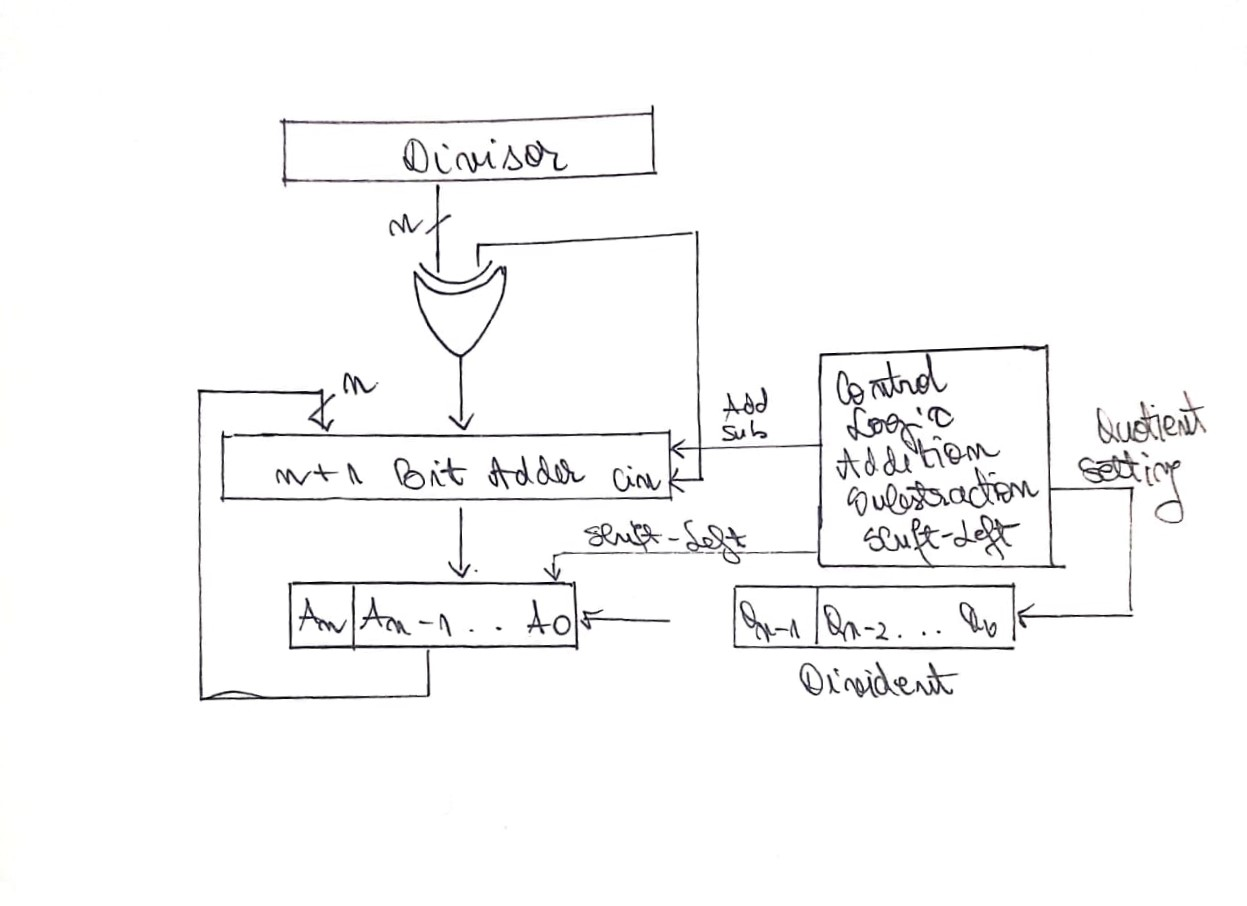 Divisor
n
n
n+1 Bit Adder Cin
Add
Sub
Control
Logic
Addition
Substraction
Shift-Left
Quotient
Setting
Shift-Left
An An-1 . . A0
Qn-1 Qn-2 . . . Q0
Divident